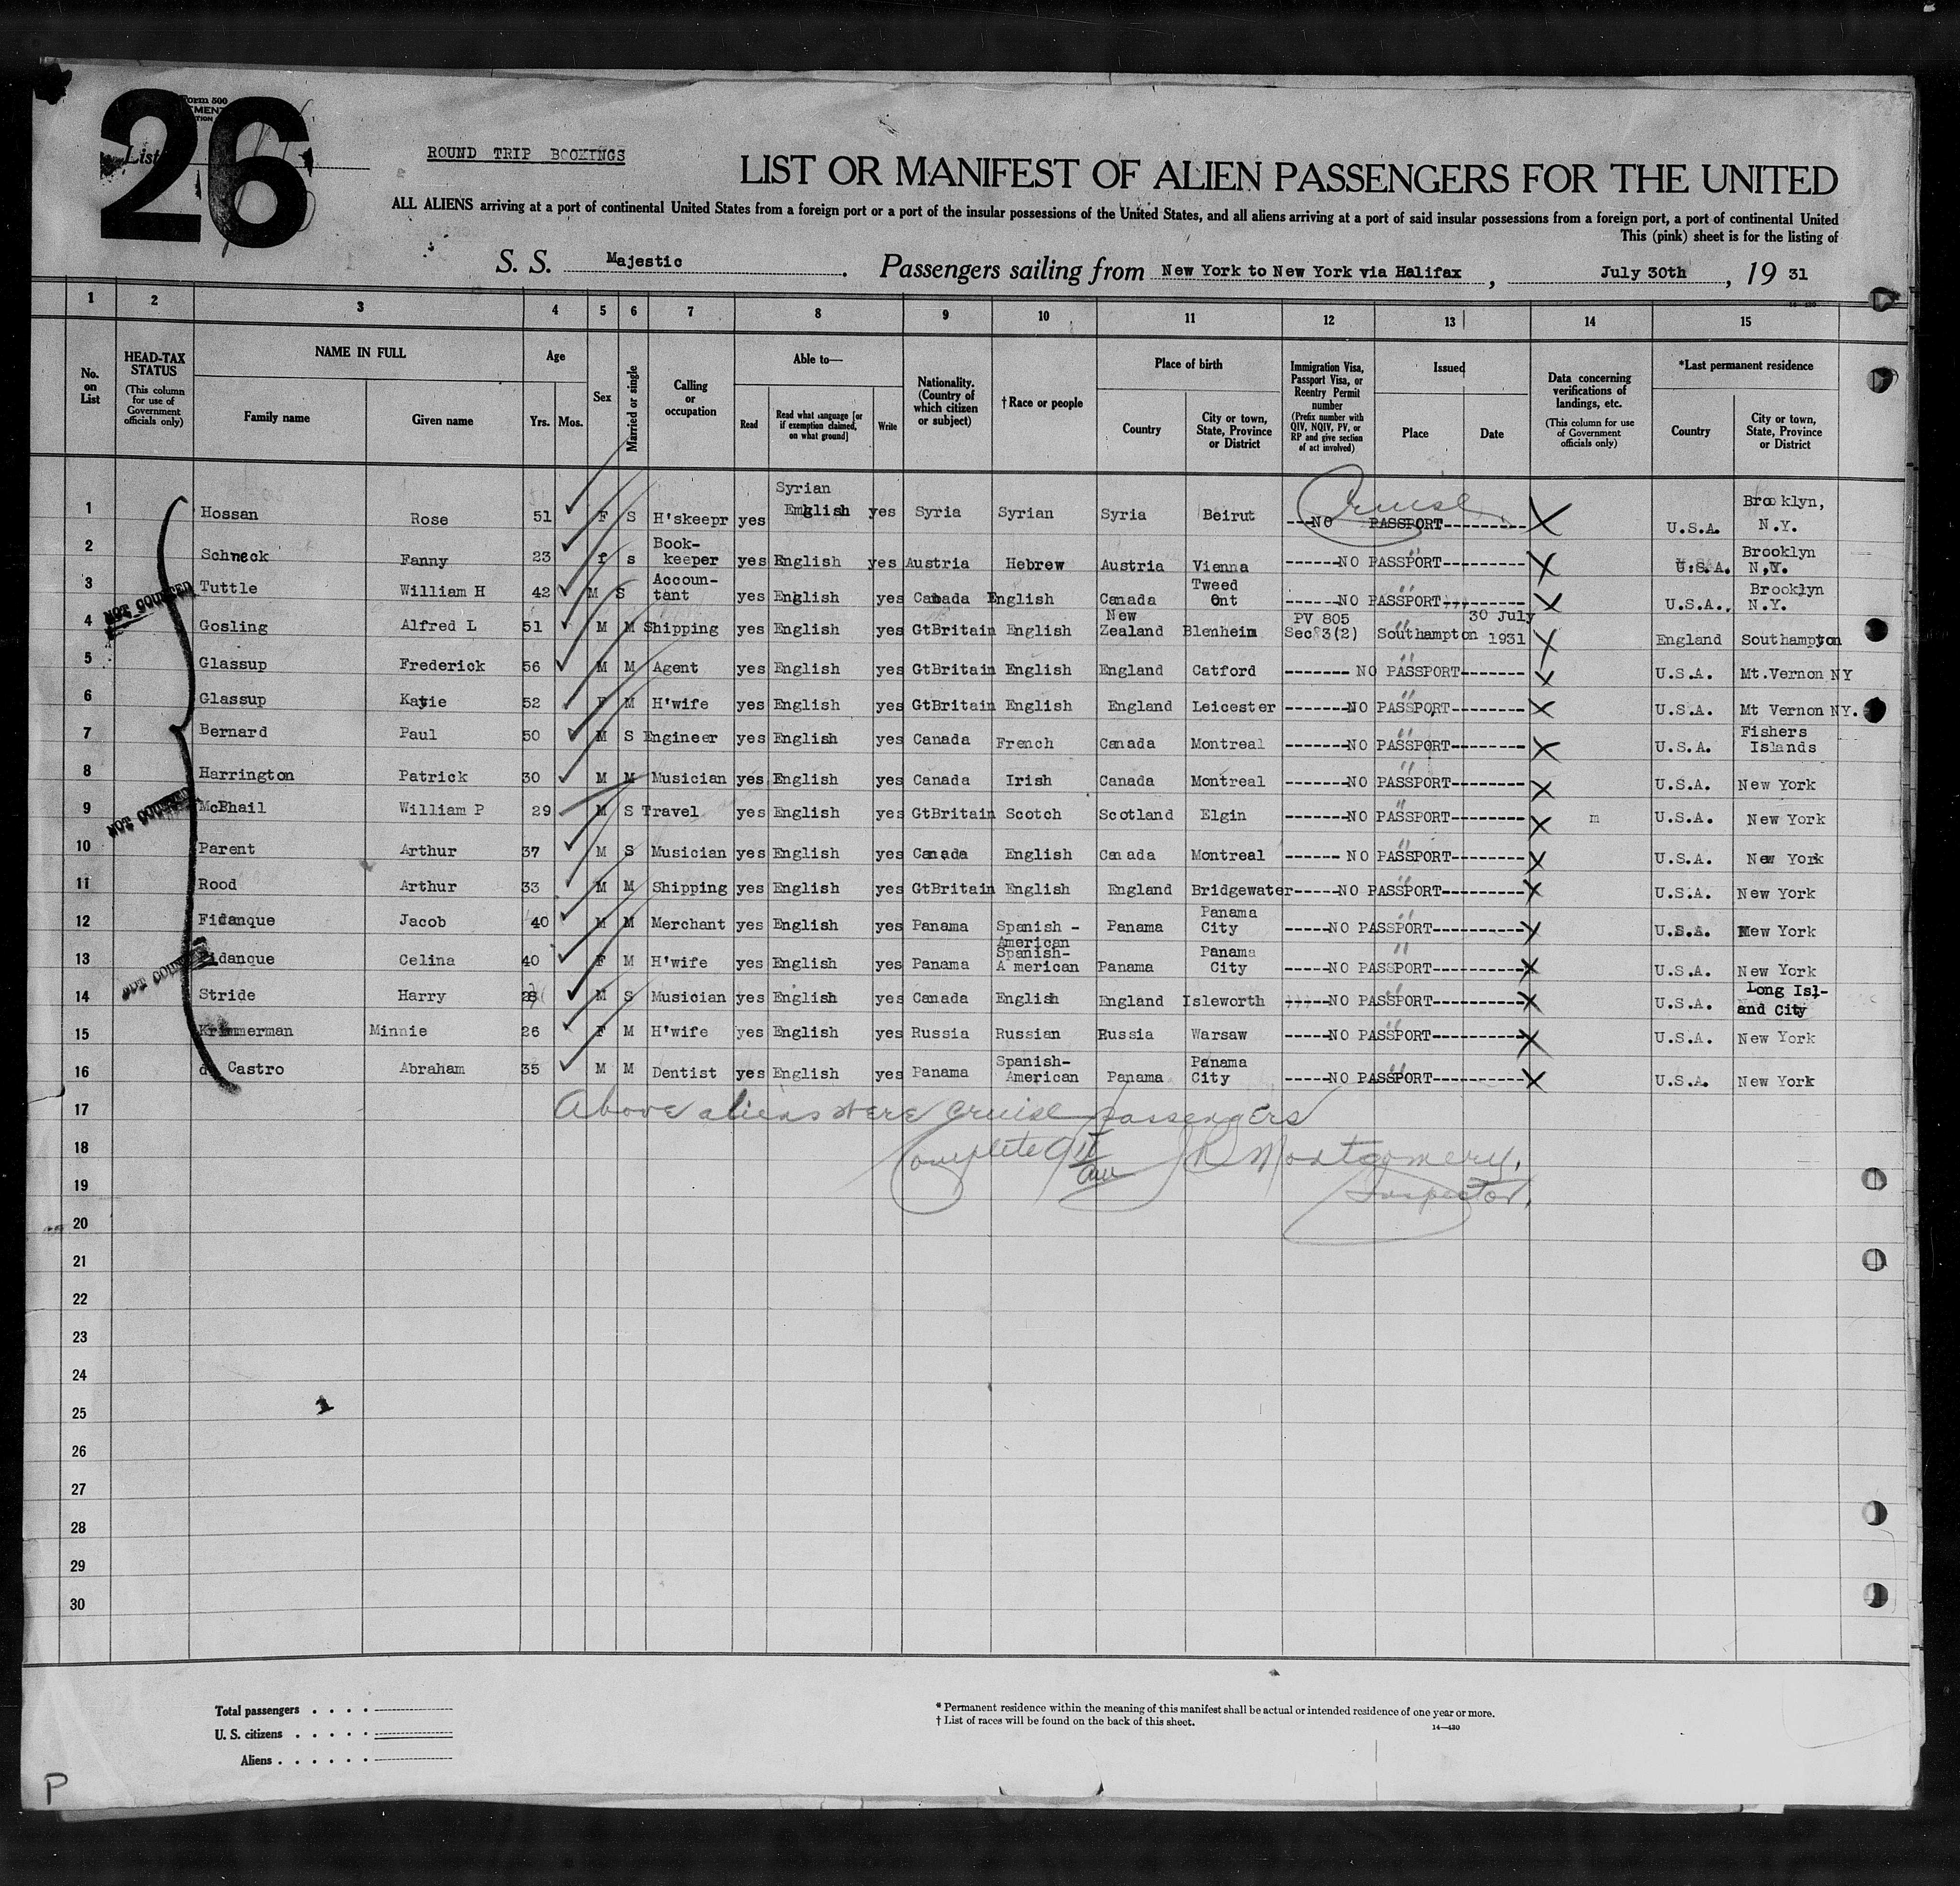 26
Form 500
List
ROUND TRIP BOOKINGS
LIST OR MANIFEST OF ALIEN PASSENGERS FOR THE UNITED
ALL ALIENS arriving at a port of continental United States from a foreign port or a port of the insular possessions of the United States, and all aliens arriving at a port of said insular possessions from a foreign port, a port of continental United
This (pink) sheet is for the listing of
S. S. Majestic. Passengers sailing from New York to New York via Halifax, July 30th, 19 31
1 2 3 4 5 6 7 8 9 10 11 12 13 14 15
No. on List
HEAD-TAX STATUS (This column for use of Government officials only)
NAME IN FULL
Family name Given name
Age
Yrs. Mos.
Sex
Married or single
Calling or occupation
Able to—
Read Read what language [or if exemption claimed, on what ground] Write
Nationality. (Country of which citizen or subject)
†Race or people
Place of birth
Country City or town, State, Province or District
Immigration Visa, Passport Visa, or Reentry Permit number (Prefix number with QIV, NQIV, PV, or RP and give section of act involved)
Issued
Place Date
Data concerning verifications of landings, etc. (This column for use of Government officials only)
*Last permanent residence
Country City or town, State, Province or District
Cruise
1 Hossan Rose 51 F S H'skeepr yes Syrian English yes Syria Syrian Syria Beirut ----NO PASSPORT---------- U.S.A. Brooklyn, N.Y.
2 Schneck Fanny 23 f s Book-keeper yes English yes Austria Hebrew Austria Vienna ------NO PASSPORT---------- U.S.A. Brooklyn N.Y.
3 Tuttle William H 42 M S Accoun-tant yes English yes Canada English Canada Tweed Ont ------NO PASSPORT---------- U.S.A. Brooklyn N.Y.
4 Gosling Alfred L 51 M M Shipping yes English yes GtBritain English New Zealand Blenheim PV 805 Sec 3(2) Southampton 30 July 1931 England Southampton
5 Glassup Frederick 56 M M Agent yes English yes GtBritain English England Catford ------- NO PASSPORT------- U.S.A. Mt.Vernon NY
6 Glassup Katie 52 F M H'wife yes English yes GtBritain English England Leicester -------NO PASSPORT-------- U.S.A. Mt Vernon NY.
7 Bernard Paul 50 M S Engineer yes English yes Canada French Canada Montreal -------NO PASSPORT-------- U.S.A. Fishers Islands
8 Harrington Patrick 30 M M Musician yes English yes Canada Irish Canada Montreal -------NO PASSPORT-------- U.S.A. New York
9 McPhail William P 29 M S Travel yes English yes GtBritain Scotch Scotland Elgin -------NO PASSPORT-------- m U.S.A. New York
10 Parent Arthur 37 M S Musician yes English yes Canada English Canada Montreal ------ NO PASSPORT-------- U.S.A. New York
11 Rood Arthur 33 M M Shipping yes English yes GtBritain English England Bridgewater-----NO PASSPORT--------- U.S.A. New York
12 Fidanque Jacob 40 M M Merchant yes English yes Panama Spanish - American Panama Panama City -----NO PASSPORT---------- U.S.A. New York
13 Fidanque Celina 40 F M H'wife yes English yes Panama Spanish-American Panama Panama City -----NO PASSPORT---------- U.S.A. New York
14 Stride Harry M S Musician yes English yes Canada English England Isleworth -----NO PASSPORT---------- U.S.A. Long Isl-and City
15 Krimmerman Minnie 26 F M H'wife yes English yes Russia Russian Russia Warsaw -----NO PASSPORT---------- U.S.A. New York
16 de Castro Abraham 35 M M Dentist yes English yes Panama Spanish-American Panama Panama City -----NO PASSPORT---------- U.S.A. New York
NOT COUNTED
NOT COUNTED
NOT COUNTED
17 Above aliens were cruise passengers
18 Complete Montgomery,
19 Inspector.
20
21
22
23
24
25
26
27
28
29
30
1
Total passengers
U. S. citizens
Aliens
* Permanent residence within the meaning of this manifest shall be actual or intended residence of one year or more.
† List of races will be found on the back of this sheet.
14—430
P